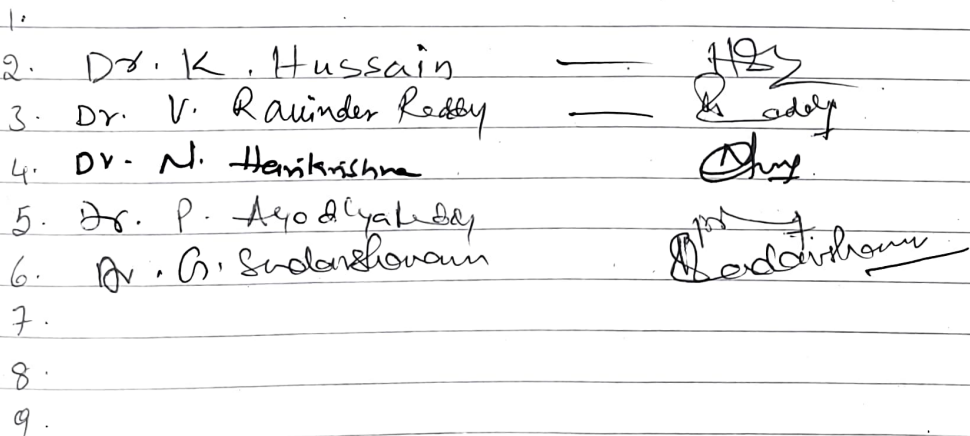 1.
2. Dr. K. Hussain —
3. Dr. V. Ravinder Reddy — Reddy
4. Dr. N. Harikrishna
5. Dr. P. Ayodhya Reddy
6. Dr. G. Sudarshanam Sudarshanam
7.
8.
9.